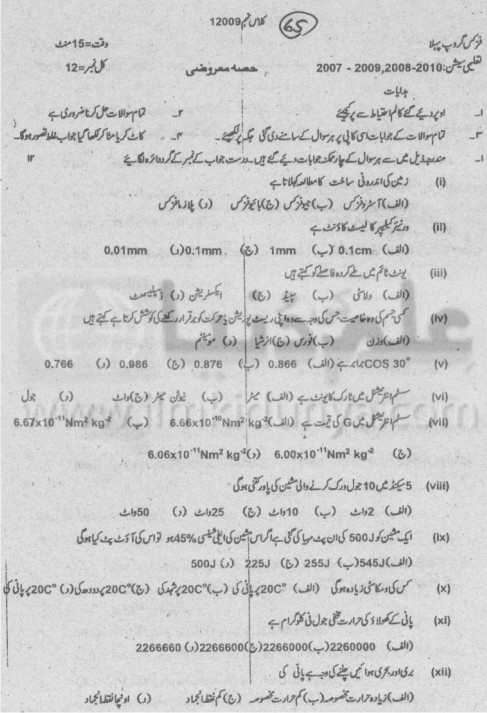 کلاس نہم 12009
65
فزکس گروپ پہلا
وقت=15 منٹ
تعلیمی سیشن:2010-2008,2009 - 2007
حصہ معروضی
کل نمبر=12
ہدایات
۱۔ اوپر دیئے گئے کالم احتیاط سے پر کیجئے ۲۔ تمام سوالات حل کرنا ضروری ہے
۳۔ تمام سوالات کے جوابات اسی کاپی پر ہر سوال کے سامنے دی گئی جگہ پر لکھیئے۔ ۴۔ کاٹ کر یا مٹا کر لکھا گیا جواب غلط تصور ہوگا۔
۱۔ مندرجہ ذیل میں سے ہر سوال کے چار ممکنہ جوابات دیے گئے ہیں۔ درست جواب کے نمبر کے گرد دائرہ لگائیے ۱۲
(i) زمین کی اندرونی ساخت کا مطالعہ کہلاتا ہے
(الف) آسٹروفزکس (ب) جیوفزکس (ج) بائیوفزکس (د) پلازما فزکس
(ii) ورنیئر کیلیپر کا لیسٹ کاؤنٹ ہے
(الف) 0.1cm (ب) 1mm (ج) 0.1mm (د) 0.01mm
(iii) یونٹ ٹائم میں طے کردہ فاصلے کو کہتے ہیں
(الف) ولاسٹی (ب) سپیڈ (ج) ایکسلریشن (د) ڈسپلیسمنٹ
(iv) کسی جسم کی وہ خاصیت جس کی وجہ سے وہ اپنی ریسٹ پوزیشن یا حرکت کو برقرار رکھنے کی کوشش کرتا ہے کہتے ہیں
(الف) وزن (ب) فورس (ج) انرشیا (د) مومینٹم
(v) COS 30° برابر ہے (الف) 0.866 (ب) 0.876 (ج) 0.986 (د) 0.766
(vi) سسٹم انٹرنیشنل میں ٹارک کا یونٹ ہے (الف) میٹر (ب) نیوٹن میٹر (ج) واٹ (د) جول
(vii) سسٹم انٹرنیشنل میں G کی قیمت ہے (الف) 6.66x10⁻¹¹Nm² kg⁻² (ب) 6.67x10⁻¹¹Nm² kg⁻²
(ج) 6.00x10⁻¹¹Nm² kg⁻² (د) 6.06x10⁻¹¹Nm² kg⁻²
(viii) 5 سیکنڈ میں 10 جول ورک کرنے والی مشین کی پاور کتنی ہوگی
(الف) 2 واٹ (ب) 10 واٹ (ج) 25 واٹ (د) 50 واٹ
(ix) ایک مشین کو 500J کی ان پٹ مہیا کی گئی ہے اگر اس مشین کی ایفی شینسی 45% ہو تو اس کی آؤٹ پٹ کیا ہوگی
(الف) 545J (ب) 255J (ج) 225J (د) 500J
(x) کس کی وسکاسٹی زیادہ ہوگی (الف) 20C° پر پانی کی (ب) 20C° پر شہد کی (ج) 20C° پر دودھ کی (د) 20C° پر پانی کی
(xi) پانی کے کھولاؤ کی حرارت مخفی جول فی کلوگرام ہے
(الف) 2260000 (ب) 2266000 (ج) 2266600 (د) 2266660
(xii) بری اور بحری ہوائیں چلنے کی وجہ ہے پانی کی
(الف) زیادہ حرارت مخصوصہ (ب) کم حرارت مخصوصہ (ج) کم نقطہ انجماد (د) اونچا نقطہ انجماد